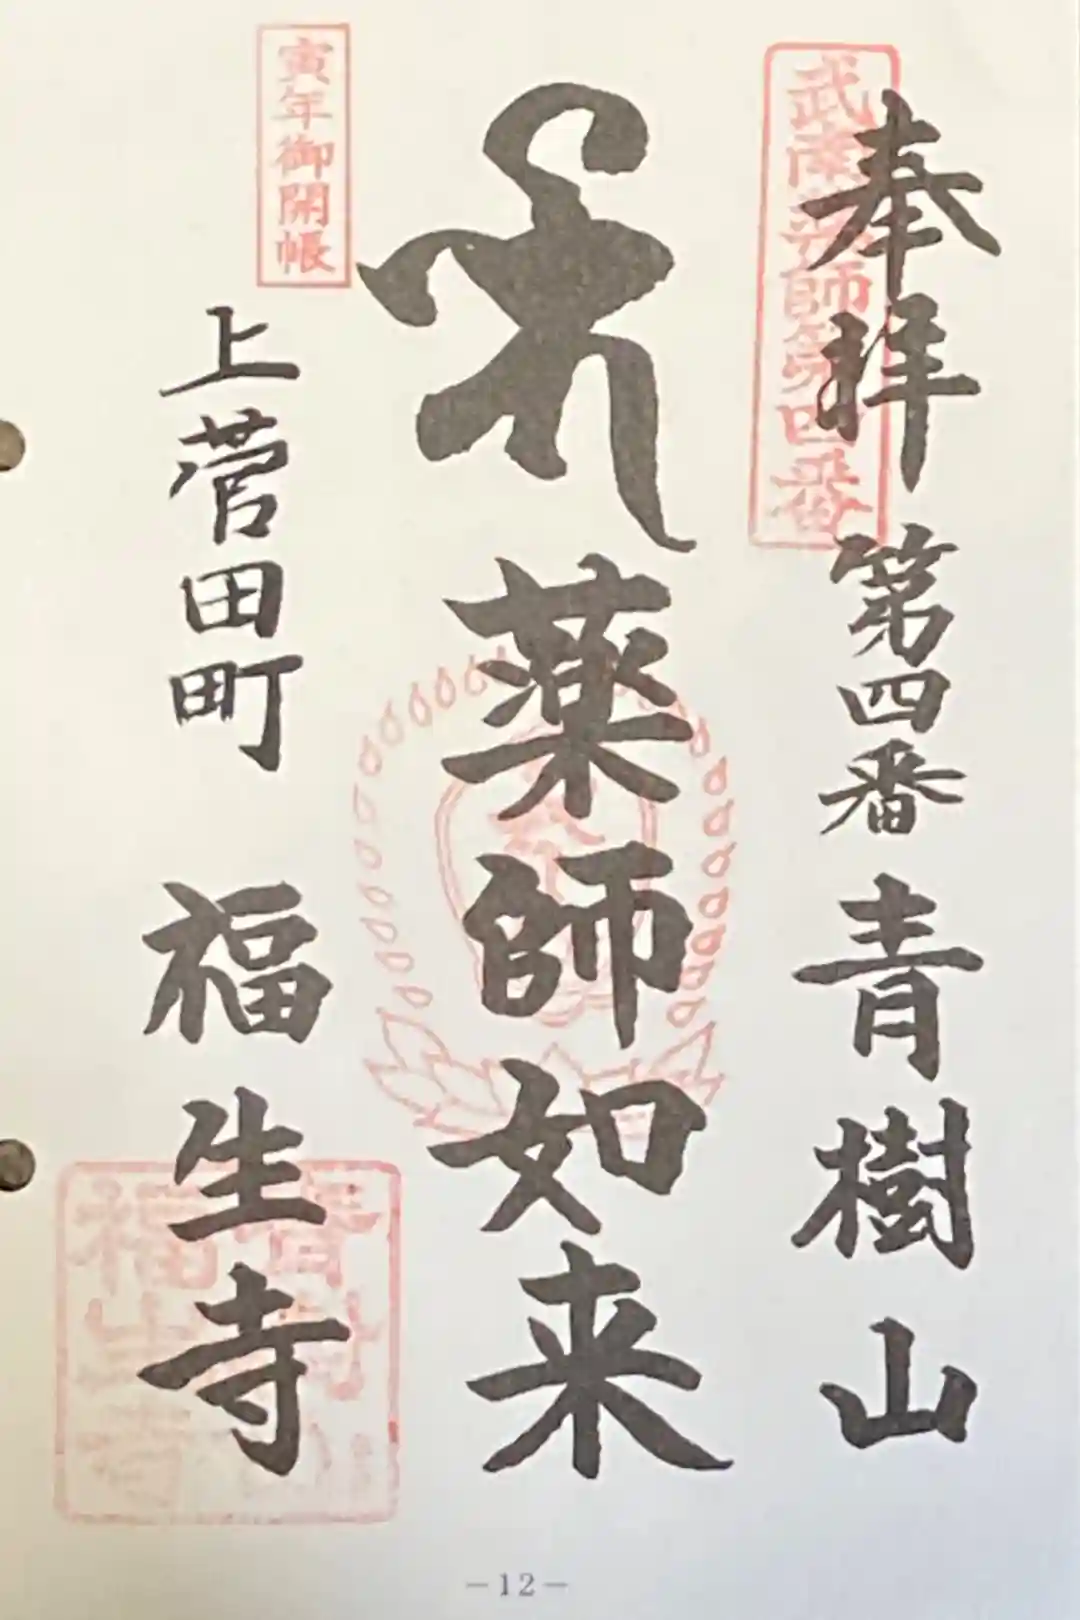 武南薬師第四番
奉拝 第四番 青樹山
薬師如来
寅年御開帳
上菅田町 福生寺
青樹山
福生寺
-12-